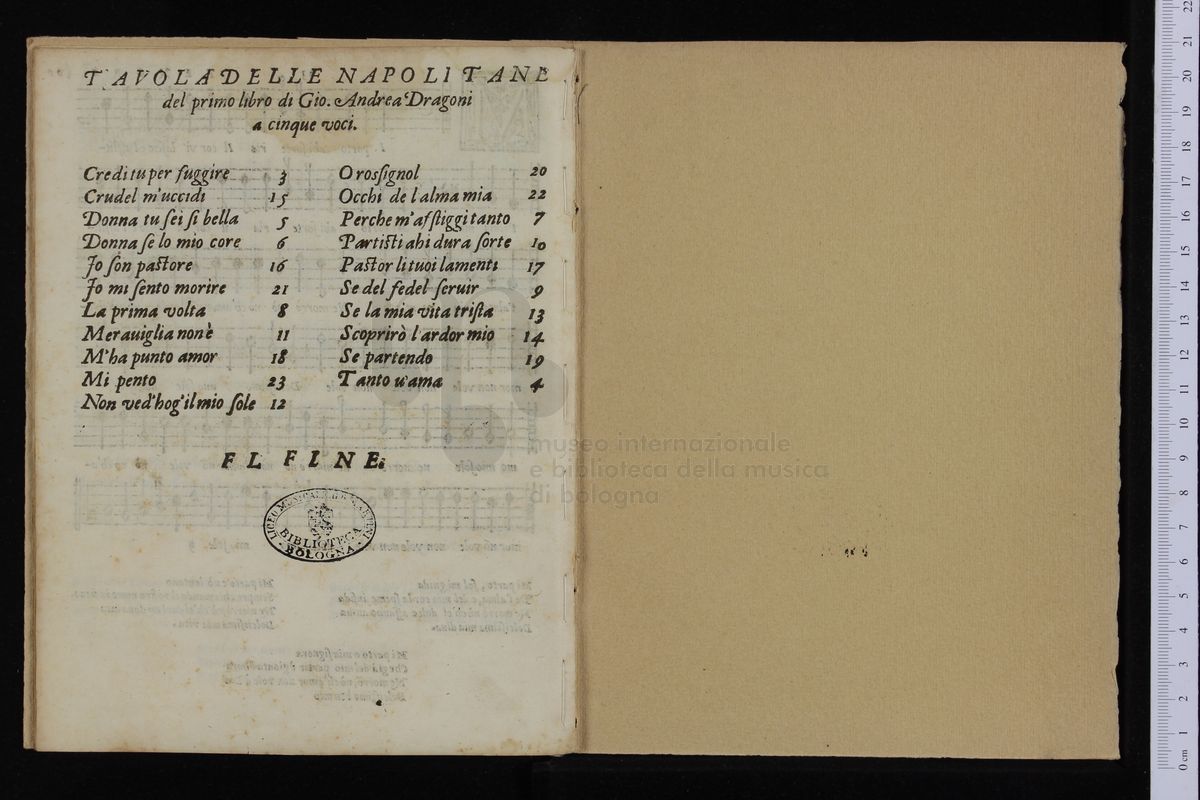 TAVOLA DELLE NAPOLITANE
del primo libro di Gio. Andrea Dragoni
a cinque voci.
Credi tu per fuggire 3
Crudel m'uccidi 15
Donna tu sei si bella 5
Donna se lo mio core 6
Jo son pastore 16
Jo mi sento morire 21
La prima volta 8
Merauiglia non è 11
M'ha punto amor 18
Mi pento 23
Non ved'hog'il mio sole 12
O rossignol 20
Occhi de l'alma mia 22
Perche m'affliggi tanto 7
Partisti ahi dura sorte 10
Pastor li tuoi lamenti 17
Se del fedel seruir 9
Se la mia vita trista 13
Scoprirò l'ardor mio 14
Se partendo 19
Tanto u'ama 4
FL FINE.
LICEO MUSICALE G.B. MARTINI
BIBLIOTECA
BOLOGNA
museo internazionale
e biblioteca della musica
di bologna
0 cm 1 2 3 4 5 6 7 8 9 10 11 12 13 14 15 16 17 18 19 20 21 22